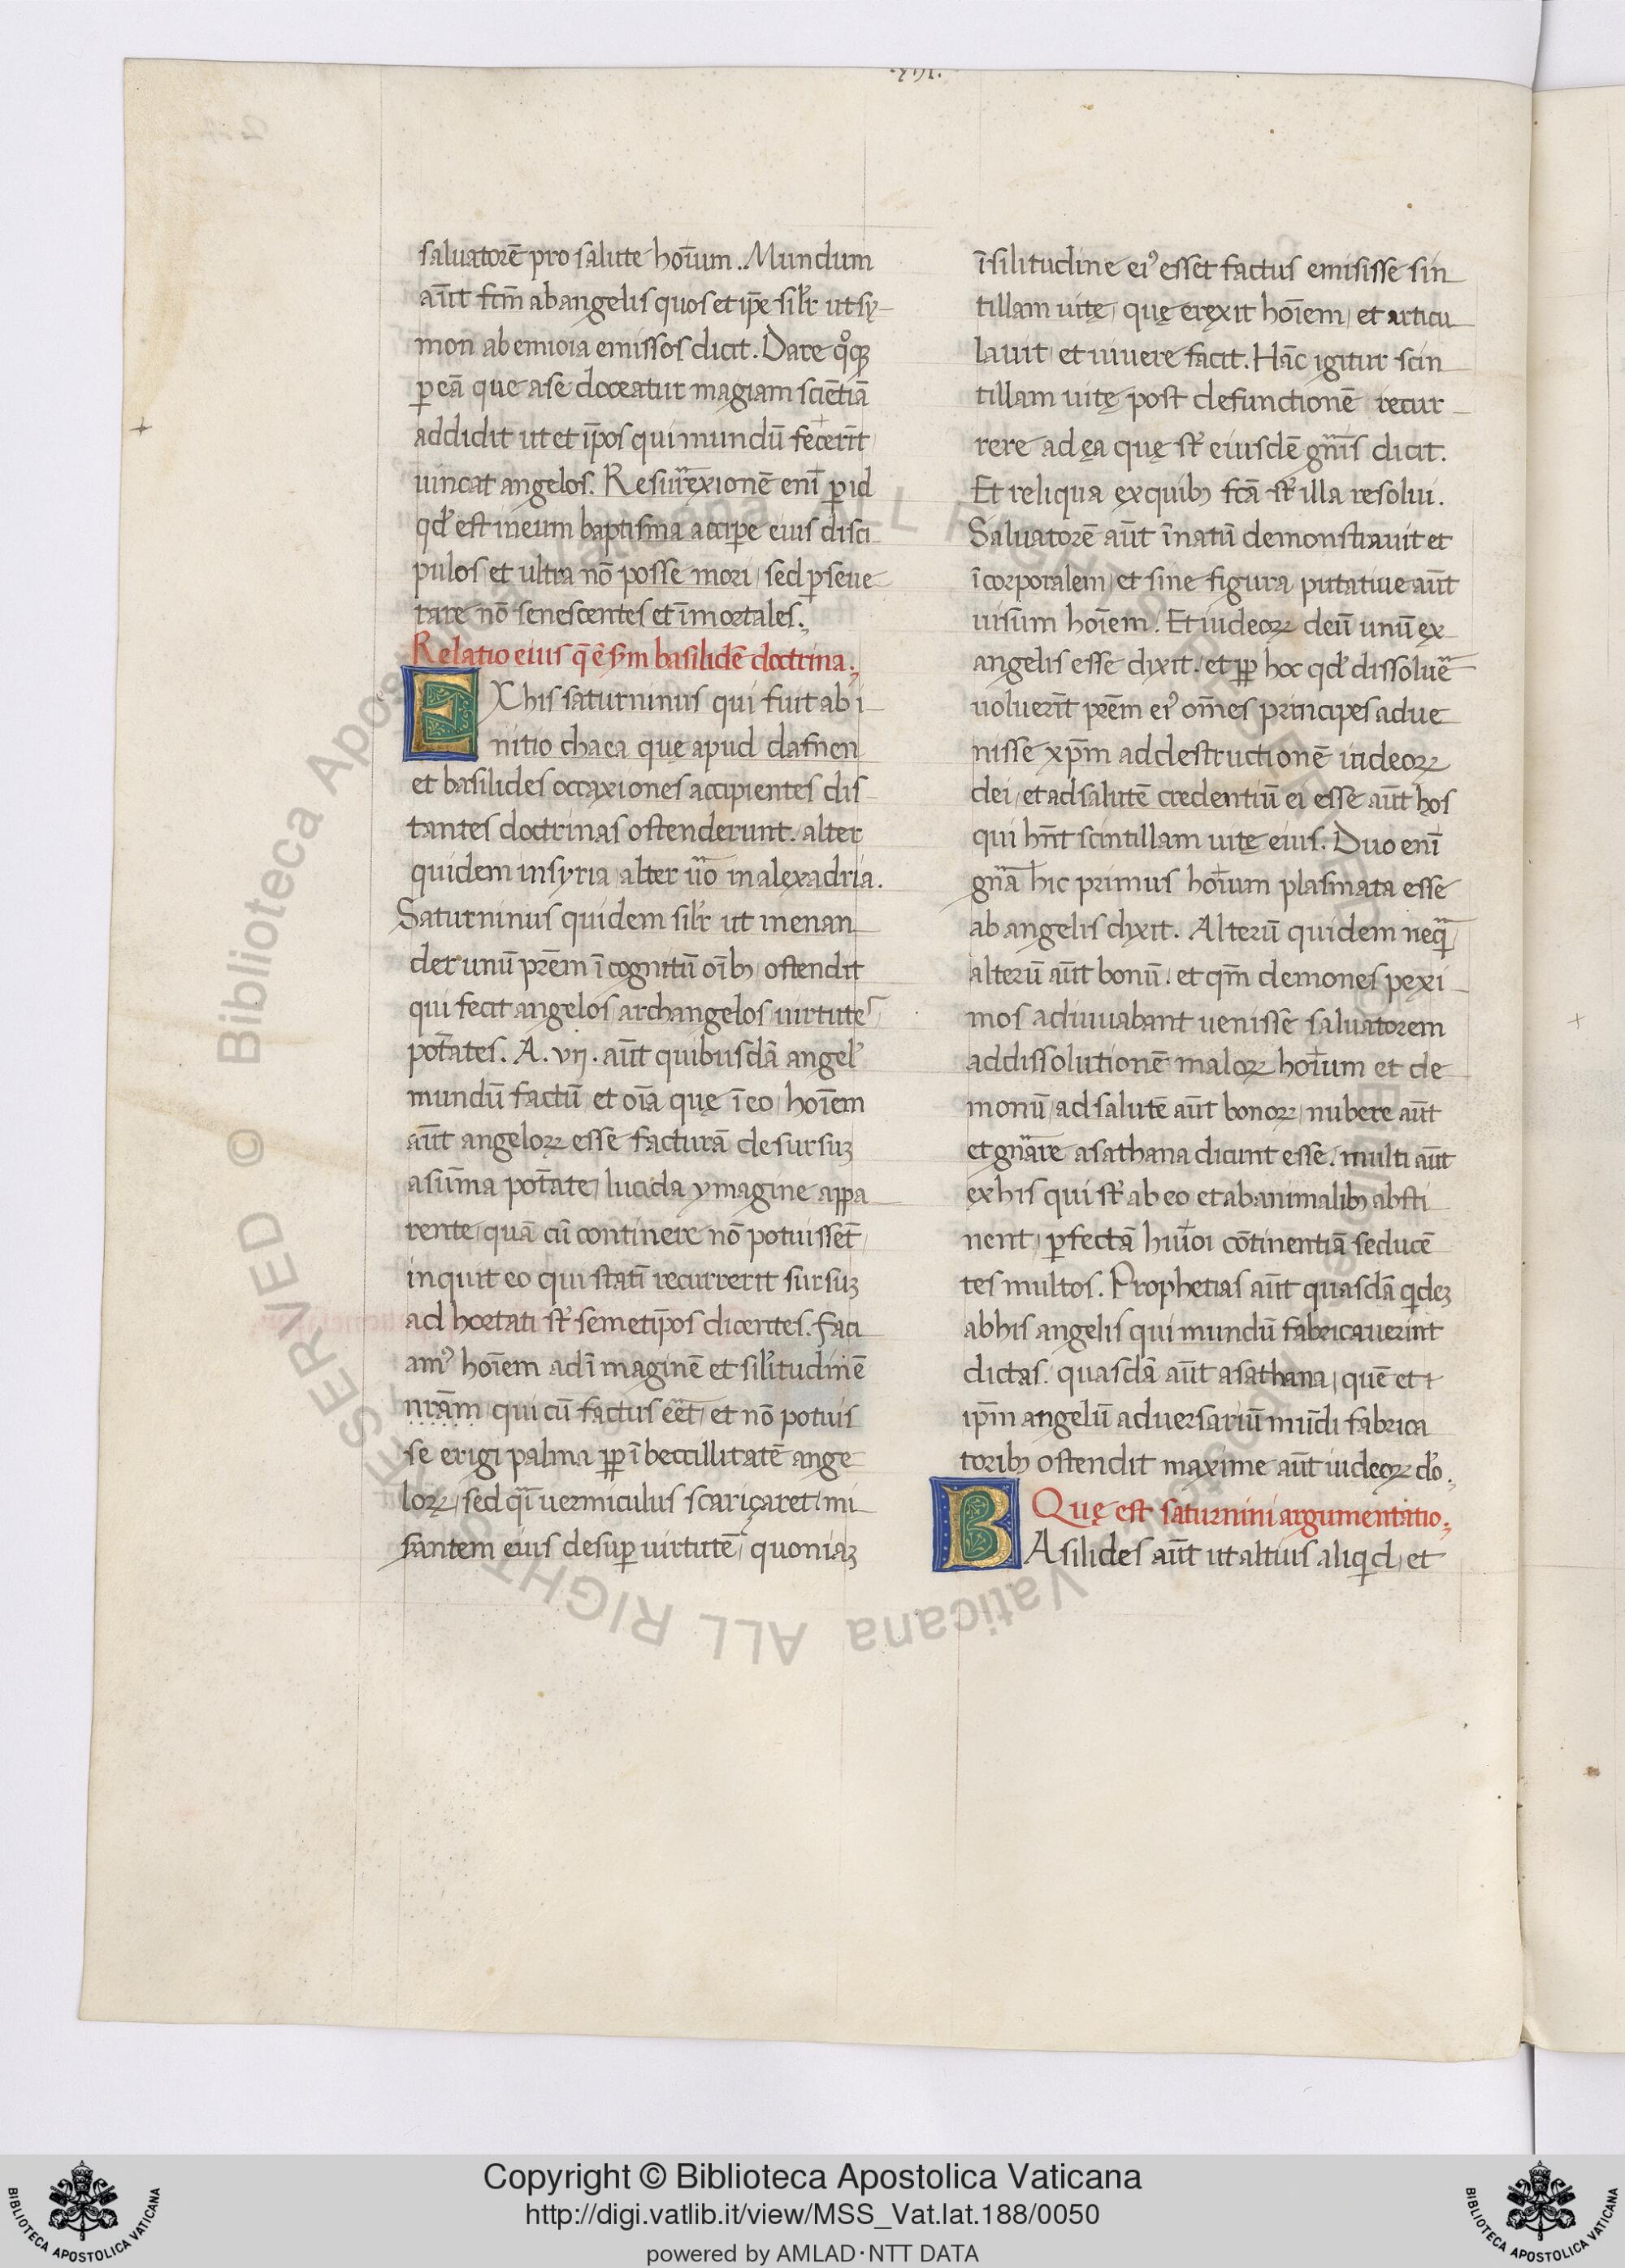 .xiii.
saluatorē pro salute hoīum. Mundum
aūt fcm̄ ab angelis quos et ip̄e sil̄r ut sy
mon ab ennoia emissos dicit. Dare q̊qꝫ
ꝑ eā que a se doceatur magiam sciētiā
addidit ut et īpos qui mundū fecer̄t
uincat angelos. Resurrexionē enī ꝑ id
qd̓ est in eum baptisma accipe eius disci
pulos et ultra nō posse mori, sed ꝑseue
rare nō senescentes et īmortales.
Relatio eius q̄ ē sꝫm basilidē doctrina.
EX his saturninus qui fuit ab i
nitio chaea quę apud dafnen
et basilides occaxiones accipientes dis
tantes doctrinas ostenderunt. alter
quidem in syria alter ūo in alexadria.
Saturninus quidem sil̄r ut menan
der unū pr̄em īcognitū oīb; ostendit
qui fecit angelos archangelos uirtutes
potātes. A. vij. aūt quibusdā angel̓
mundū factū et oīa quę ī eo, hoīem
aūt angeloꝝ esse facturā desursuꝫ
a sūma potāte, lucida ymagine appa
rente, quā cū continere nō potuisset̄
inquit eo qui statī recurrerit sursuꝫ
ad hortati st̓ semetip̄os dicentes. faci
amꝰ hoīem ad īmaginē et sil̓itudinē
nrām qui cū factus eēt, et nō potuis
se erigi palma ꝓp ībeccillitatē ange
loꝝ, sed q̄i uermiculus scariçaret, mi
santem eius desuꝑ uirtutē, quoniaꝫ
ī silitudine eiꝰ esset factus emisisse sin
tillam uitę, quę erexit hoīem, et articu
lauit, et uiuere facit. Hāc igitur scin
tillam uitę post defunctionē recur
rere ad ęa quę st̓ eiusdē gn̄is dicit.
Et reliqua ex quib; fcā st̓ illa resolui.
Saluatorē aūt īnatū demonstrauit et
īcorporalem, et sine figura, putatiue aūt
uisum hoīem. Et iudeoꝝ deū unū ex
angelis esse dixit. et ꝓp hoc qd̓ dissoluē
uoluer̄t pr̄em eiꝰ om̄es principes adue
nisse xp̄m ad destructionē iudeoꝝ
dei, et ad salutē credentiū ei esse aūt hos
qui hn̄t scintillam uitę eius. Duo enī
gn̄a hic primus hoīum plasmata esse
ab angelis dixit. Alterū quidem neq̄
alterū aūt bonū. et qm̄ demones pexi
mos adiuuabant uenisse saluatorem
ad dissolutionē maloꝝ hoīum et de
monū, ad salutē aūt bonoꝝ, nubere aūt
et gn̄are a sathana dicunt esse. multi aūt
ex his qui st̓ ab eo et ab animalib; absti
nent, ꝑfectā huīoi cōtinentiā seducē
tes multos. Prophetias aūt quasdā qideꝫ
ab his angelis qui mundū fabricauerint
dictas. quasdā aūt a sathana, quē et i
ip̄m angelū aduersariū mūdi fabrica
torib; ostendit maxime aūt iudeoꝝ do̓.
Quę est saturnini argumentatio.
BAsilides aūt ut altius aliqid, et
Copyright © Biblioteca Apostolica Vaticana
http://digi.vatlib.it/view/MSS_Vat.lat.188/0050
powered by AMLAD·NTT DATA